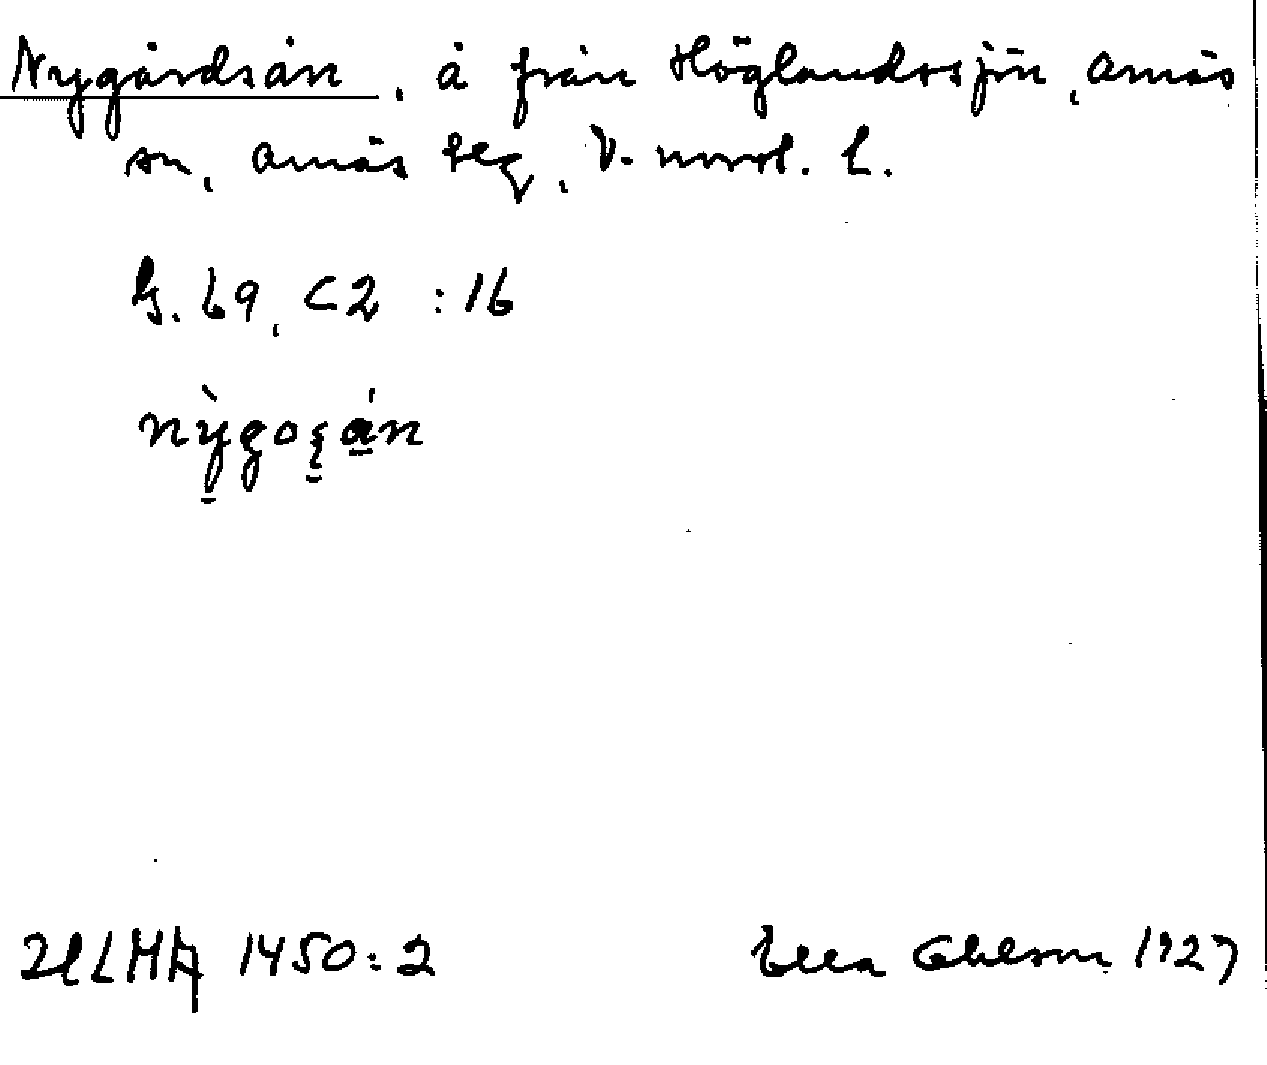 Nygårdsån, å från Höglandssjön, Anäs
sn, Anäs tg, V. norrl. L.
G. 69, C2 :16
nỳgoşán
ULMA 1450:2
Ella Ohlson 1927